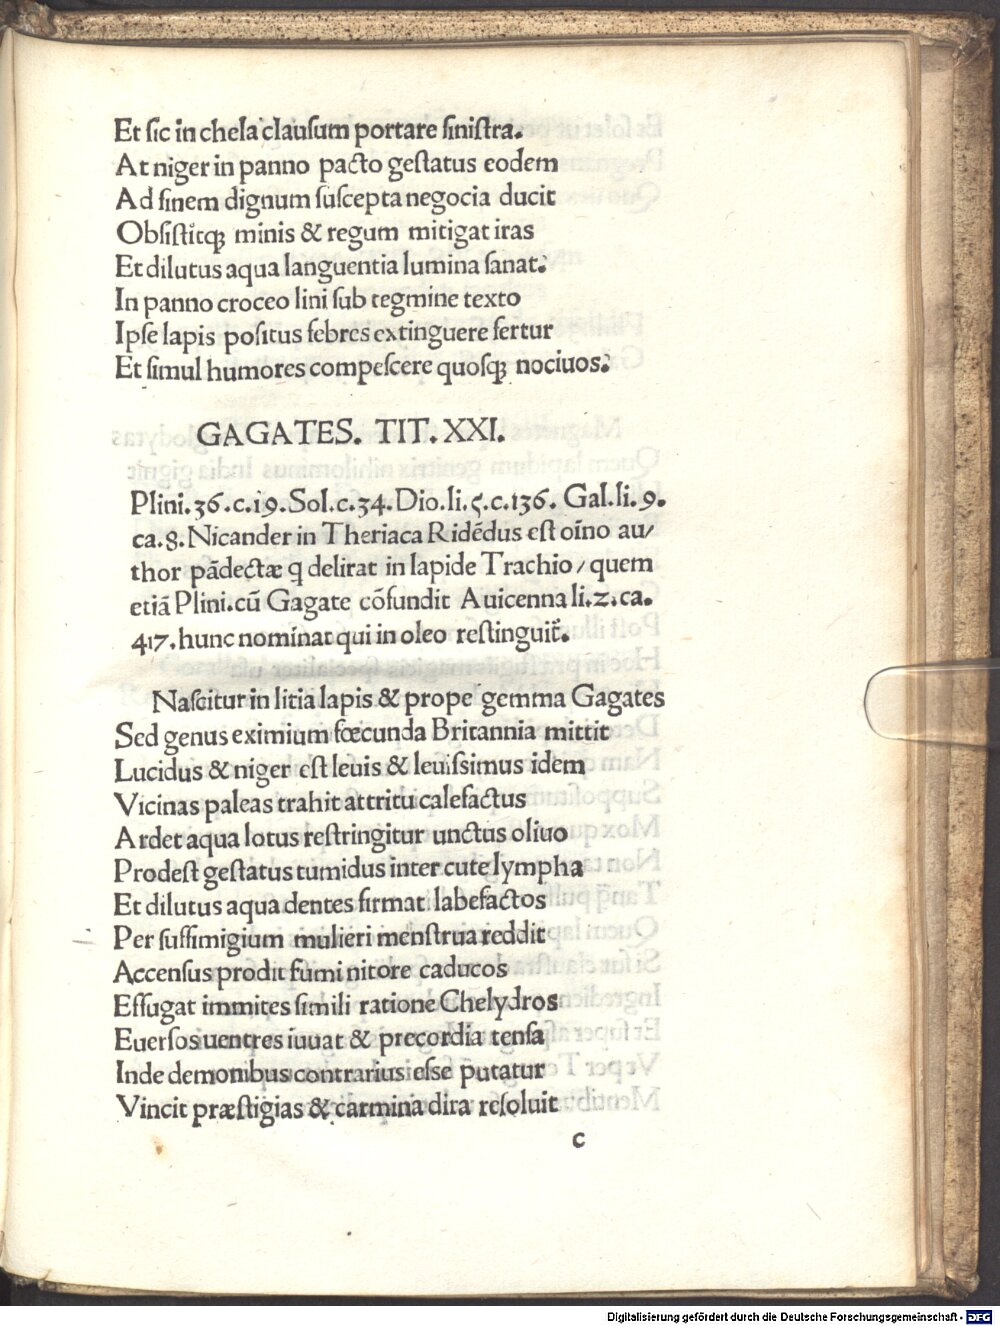 Et ſic in chela clauſum portare ſiniſtra.
At niger in panno pacto geſtatus eodem
Ad finem dignum ſuſcepta negocia ducit
Obſiſtitqꝫ minis & regum mitigat iras
Et dilutus aqua languentia lumina ſanat:
In panno croceo lini ſub tegmine texto
Ipſe lapis poſitus febres extinguere fertur
Et ſimul humores compeſcere quoſqꝫ nociuos:
GAGATES. TIT. XXI.
Plini.36.c.19.Sol.c.34.Dio.li.5.c.136. Gal.li.9.
ca.8.Nicander in Theriaca Ridēdus eſt oīno au/
thor pādectæ q delirat in lapide Trachio/quem
etiā Plini.cū Gagate cōfundit Auicenna li.2.ca.
417.hunc nominat qui in oleo reſtinguit̄.
Naſcitur in litia lapis & prope gemma Gagates
Sed genus eximium fœcunda Britannia mittit
Lucidus & niger eſt leuis & leuiſſimus idem
Vicinas paleas trahit attritu calefactus
Ardet aqua lotus reſtringitur unctus oliuo
Prodeſt geſtatus tumidus inter cute lympha
Et dilutus aqua dentes firmat labefactos
Per ſuffimigium mulieri menſtrua reddit
Accenſus prodit fumi nitore caducos
Effugat immites ſimili ratione Chelydros
Euerſos uentres iuuat & precordia tenſa
Inde demonibus contrarius eſſe putatur
Vincit præſtigias & carmina dira reſoluit
c
Digitalisierung gefördert durch die Deutsche Forschungsgemeinschaft - DFG